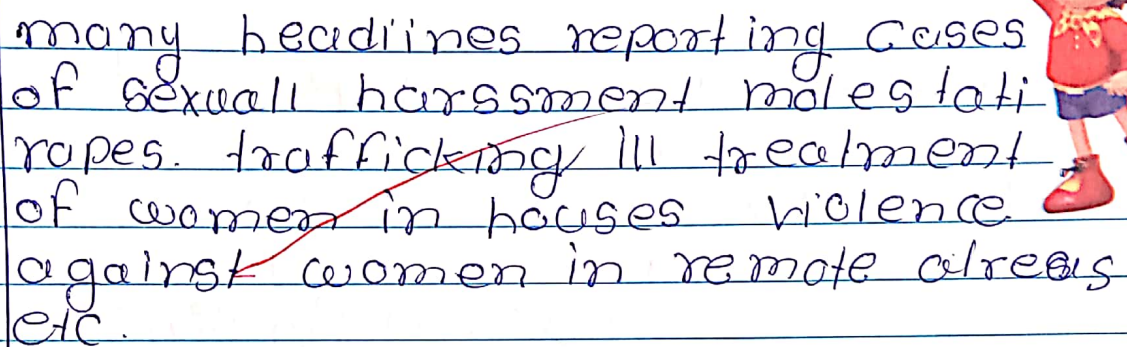 many headiines reporting cases
of sexuall harssment molestati
rapes. trafficking ill treatment
of women in houses violence
against women in remote alreas
etc.